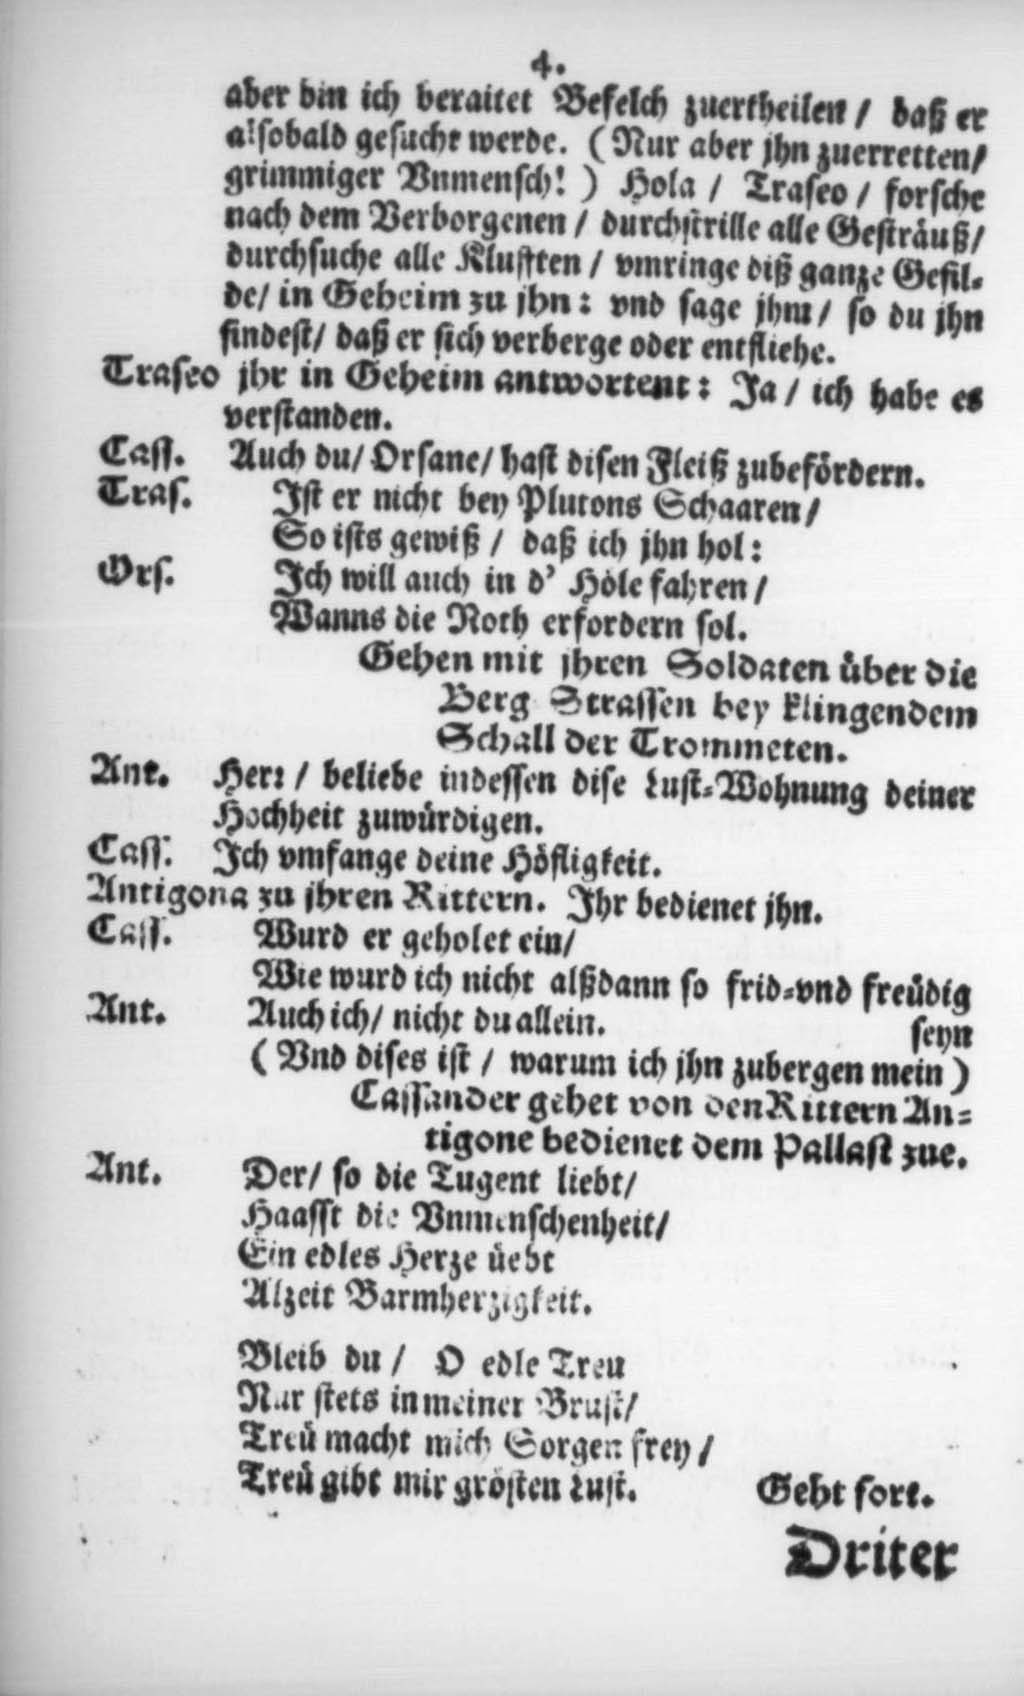 4.
aber bin ich beraitet Befelch zuertheilen / daß er
alsobald gesucht werde. ( Nur aber jhn zuerretten/
grimmiger Vnmensch! ) Hola / Traseo / forsche
nach dem Verborgenen / durchstrille alle Gesträuß/
durchsuche alle Klufften / vmringe diß ganze Gefil-
de/ in Geheim zu jhn: vnd sage jhm / so du jhn
findest/ daß er sich verberge oder entfliehe.
Traseo jhr in Geheim antwortent: Ja / ich habe es
verstanden.
Cass. Auch du/ Orsane/ hast disen Fleiß zubefördern.
Tras. Ist er nicht bey Plutons Schaaren/
So ists gewiß / daß ich jhn hol:
Ors. Ich will auch in d' Höle fahren /
Wanns die Noth erfordern sol.
Gehen mit jhren Soldaten über die
Berg Strassen bey klingendem
Schall der Trommeten.
Ant. Herr / beliebe indessen dise Lust-Wohnung deiner
Hochheit zuwürdigen.
Cass. Ich vmfange deine Höfligkeit.
Antigona zu jhren Rittern. Ihr bedienet jhn.
Cass. Wurd er geholet ein/
Wie wurd ich nicht alßdann so frid-vnd freüdig
Ant. Auch ich/ nicht du allein. seyn
( Vnd dises ist / warum ich jhn zubergen mein )
Cassander gehet von den Rittern An-
tigone bedienet dem Pallast zue.
Ant. Der/ so die Tugent liebt/
Haasst die Vnmenschenheit/
Ein edles Herze üebt
Alzeit Barmherzigkeit.
Bleib du / O edle Treu
Nur stets in meiner Brust/
Treü macht mich Sorgen frey /
Treü gibt mir grösten Lust. Geht fort.
Driter